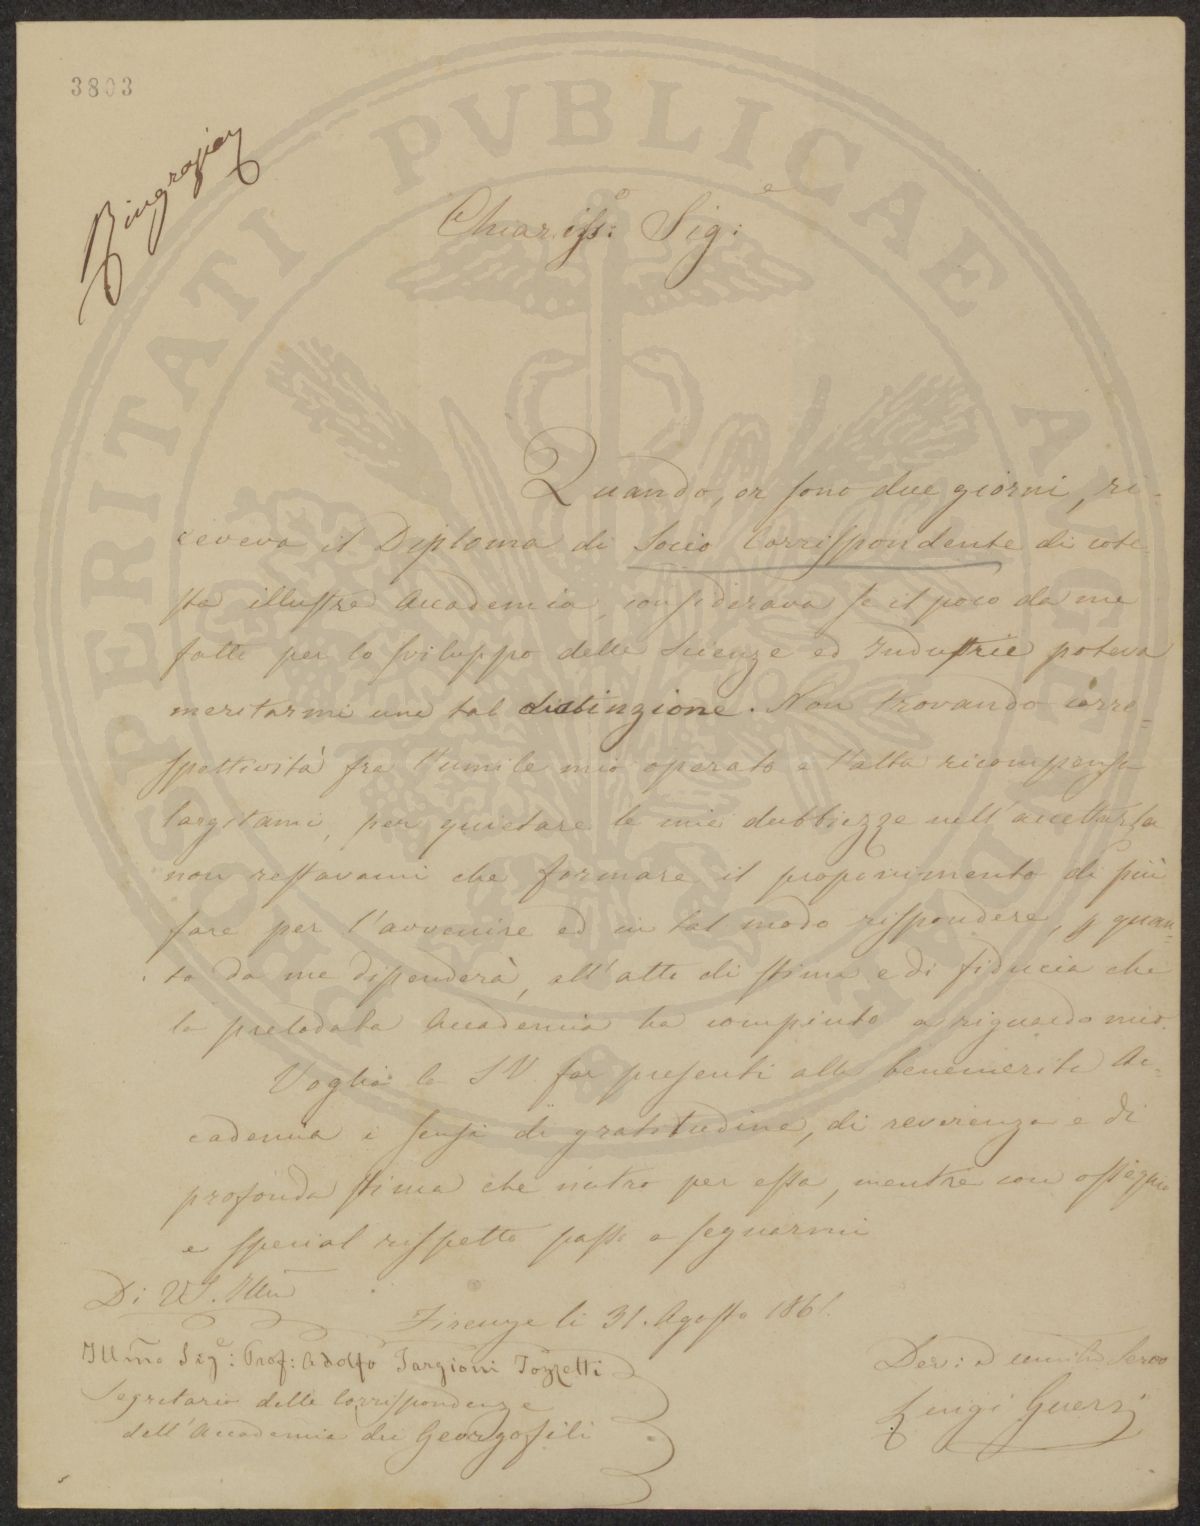 3803
Ringrazia
Chiariss:º Sig:e
Quando, or sono due giorni, ri-
ceveva il Diploma di Socio Corrispondente di cote-
sta illustre Accademia, considerava se il poco da me
fatto per lo sviluppo delle Scienze ed Industrie poteva
meritarmi una tal distinzione. Non trovando corre-
spettività fra l'umile mio operato e l'alta ricompensa
largitami, per quietare le mie dubbiezze nell'accettarla
non restavami che formare il proponimento di più
fare per l'avvenire ed in tal modo rispondere, p quan-
to da me dipenderà, all'atto di stima e di fiducia che
la prelodata Accademia ha compiuto a riguardo mio.
Voglia la S V. far presenti alla benemerita Ac-
cademia i sensi di gratitudine, di reverenza e di
profonda stima che nutro per essa, mentre con ossequio
e special rispetto passo a segnarmi
Di V S. Illma
Firenze li 31. Agosto 1861.
Illmo Sige: Prof: Adolfo Targioni Tozzetti
Segretario delle Corrispondenze
dell'Accademia dei Georgofili
Dev: ed umile Servo
Luigi Guerri
PROSPERITATI PVBLICAE AVGENDAE